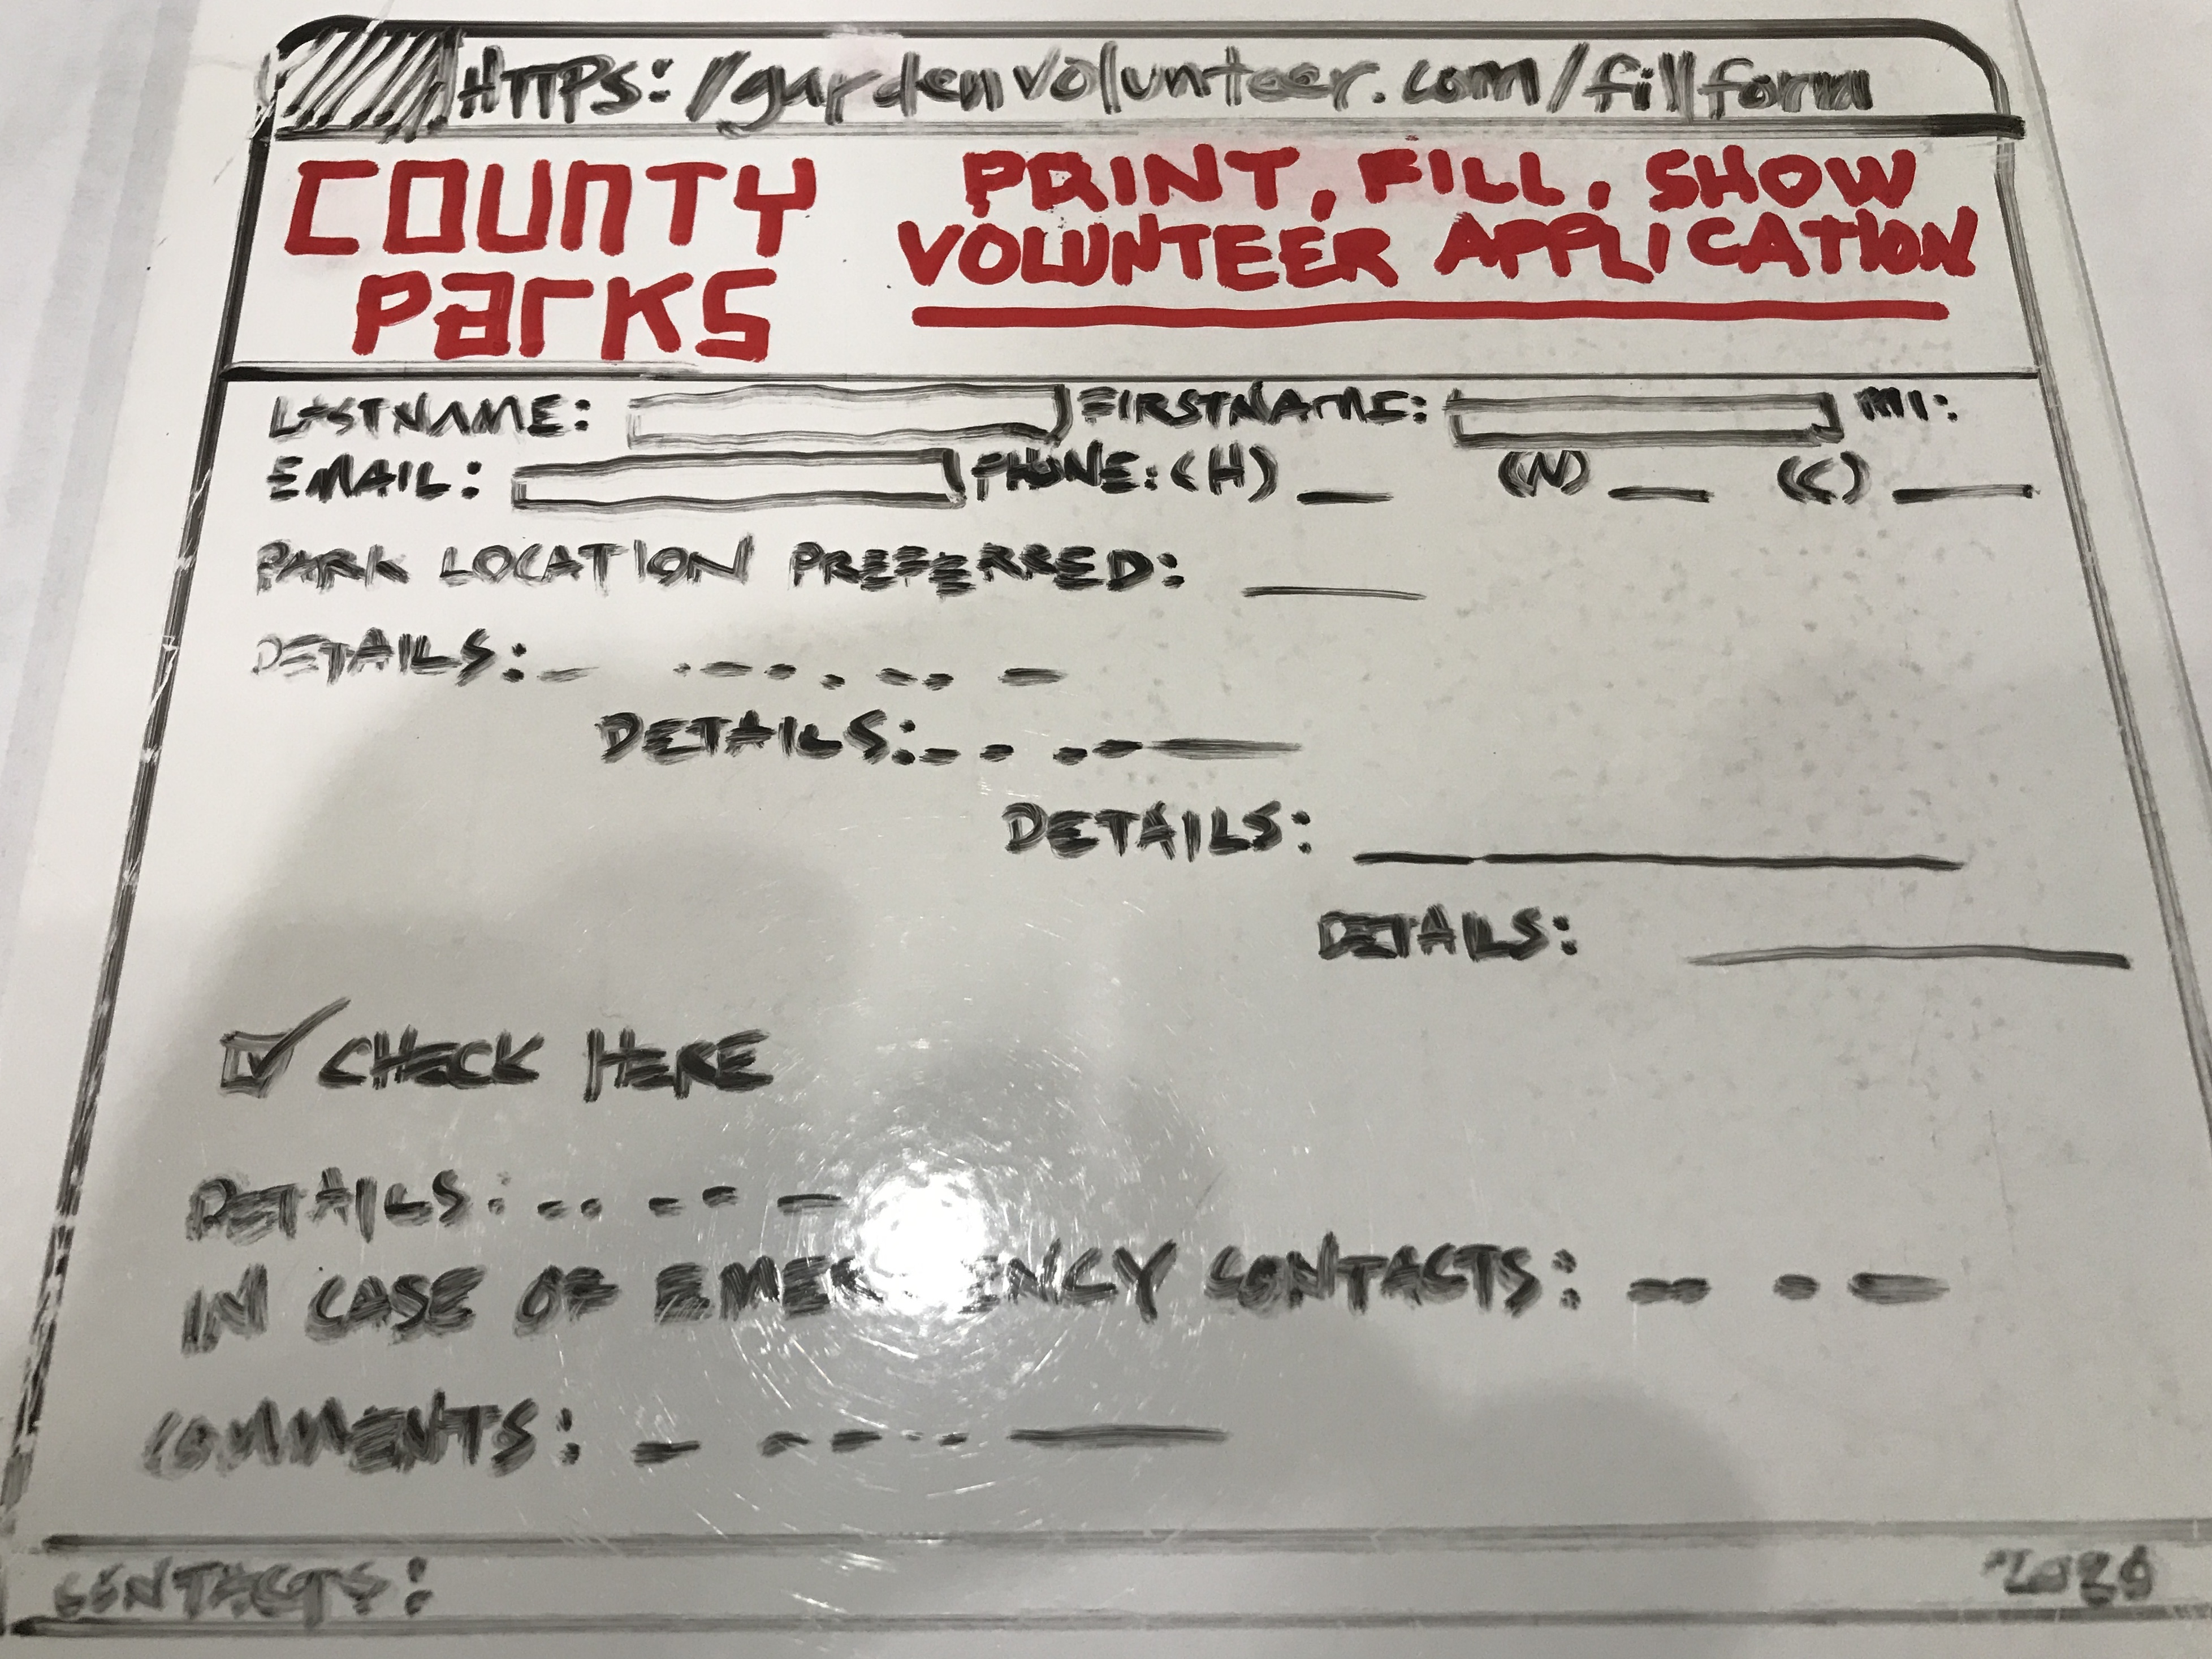 HTTPS://gardenvolunteer.com/fillform
COUNTY PARKS
PRINT, FILL, SHOW
VOLUNTEER APPLICATION
LASTNAME: FIRSTNAME: MI:
EMAIL: PHONE: (H) (W) (C)
PARK LOCATION PREFERRED:
DETAILS:
DETAILS:
DETAILS:
DETAILS:
CHECK HERE
DETAILS:
IN CASE OF EMERGENCY CONTACTS:
COMMENTS:
CONTACTS: